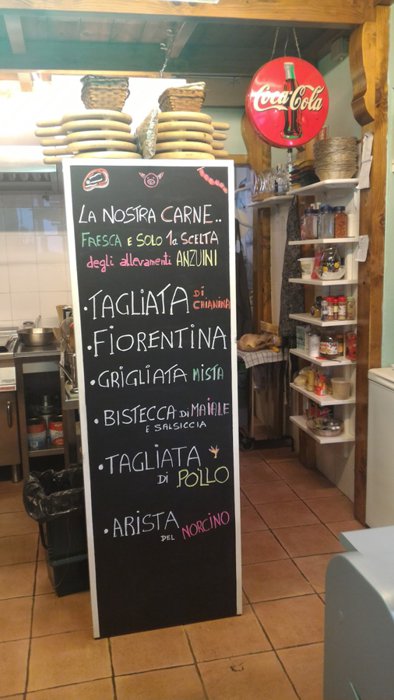 LA NOSTRA CARNE..
FRESCA E SOLO 1a SCELTA
degli allevamenti ANZUINI
• TAGLIATA DI CHIANINA
• FIORENTINA
• GRIGLIATA MISTA
• BISTECCA DI MAIALE
E SALSICCIA
• TAGLIATA
DI POLLO
• ARISTA
DEL NORCINO
Coca-Cola